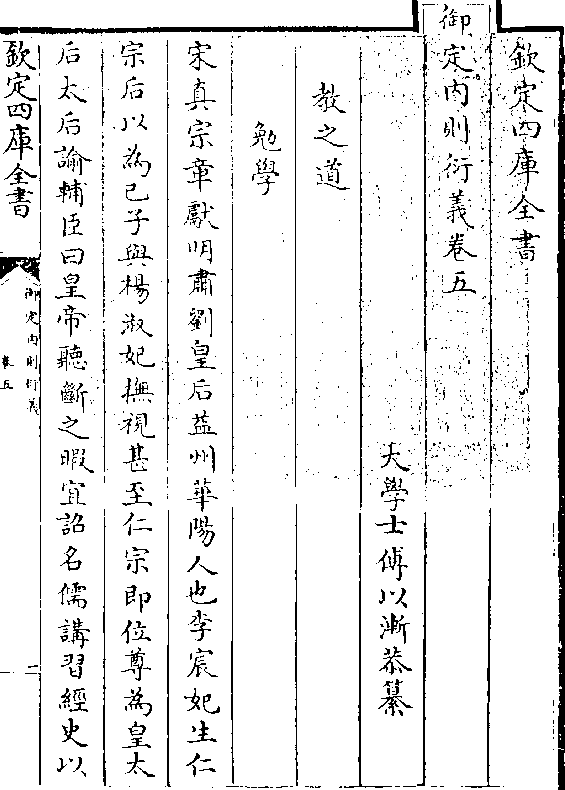 欽定四庫全書
御定內則衍義卷五
大學士傅以漸恭纂
教之道
勉學
宋真宗章獻明肅劉皇后益州華陽人也李宸妃生仁
宗后以為已子與楊淑妃撫視甚至仁宗即位尊為皇太
后太后諭輔臣曰皇帝聽斷之暇宜詔名儒講習經史以
欽定四庫全書
御定內則衍義
卷五
一